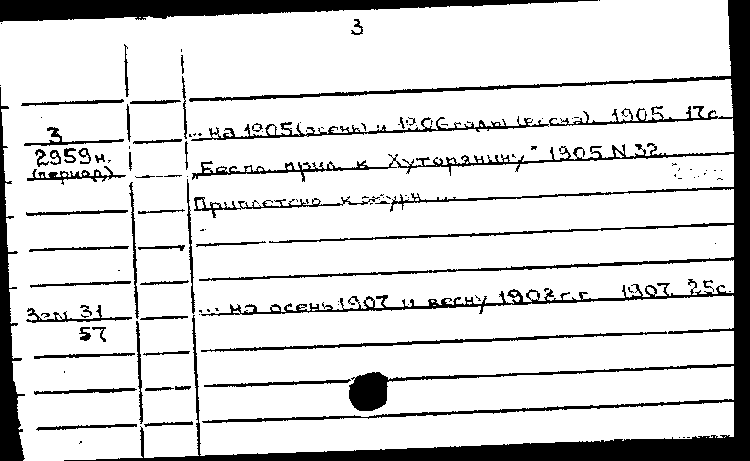 3
3 ... на 1905 (осень) и 1906 годы (весна). 1905. 17с.
2959н. „Беспл. прил. к Хуторянину" 1905 N 32.
(период)
Приплетено к журн. ...
Зем. 31 ... на осень 1907 и весну 1908 г.г. 1907. 25с.
57